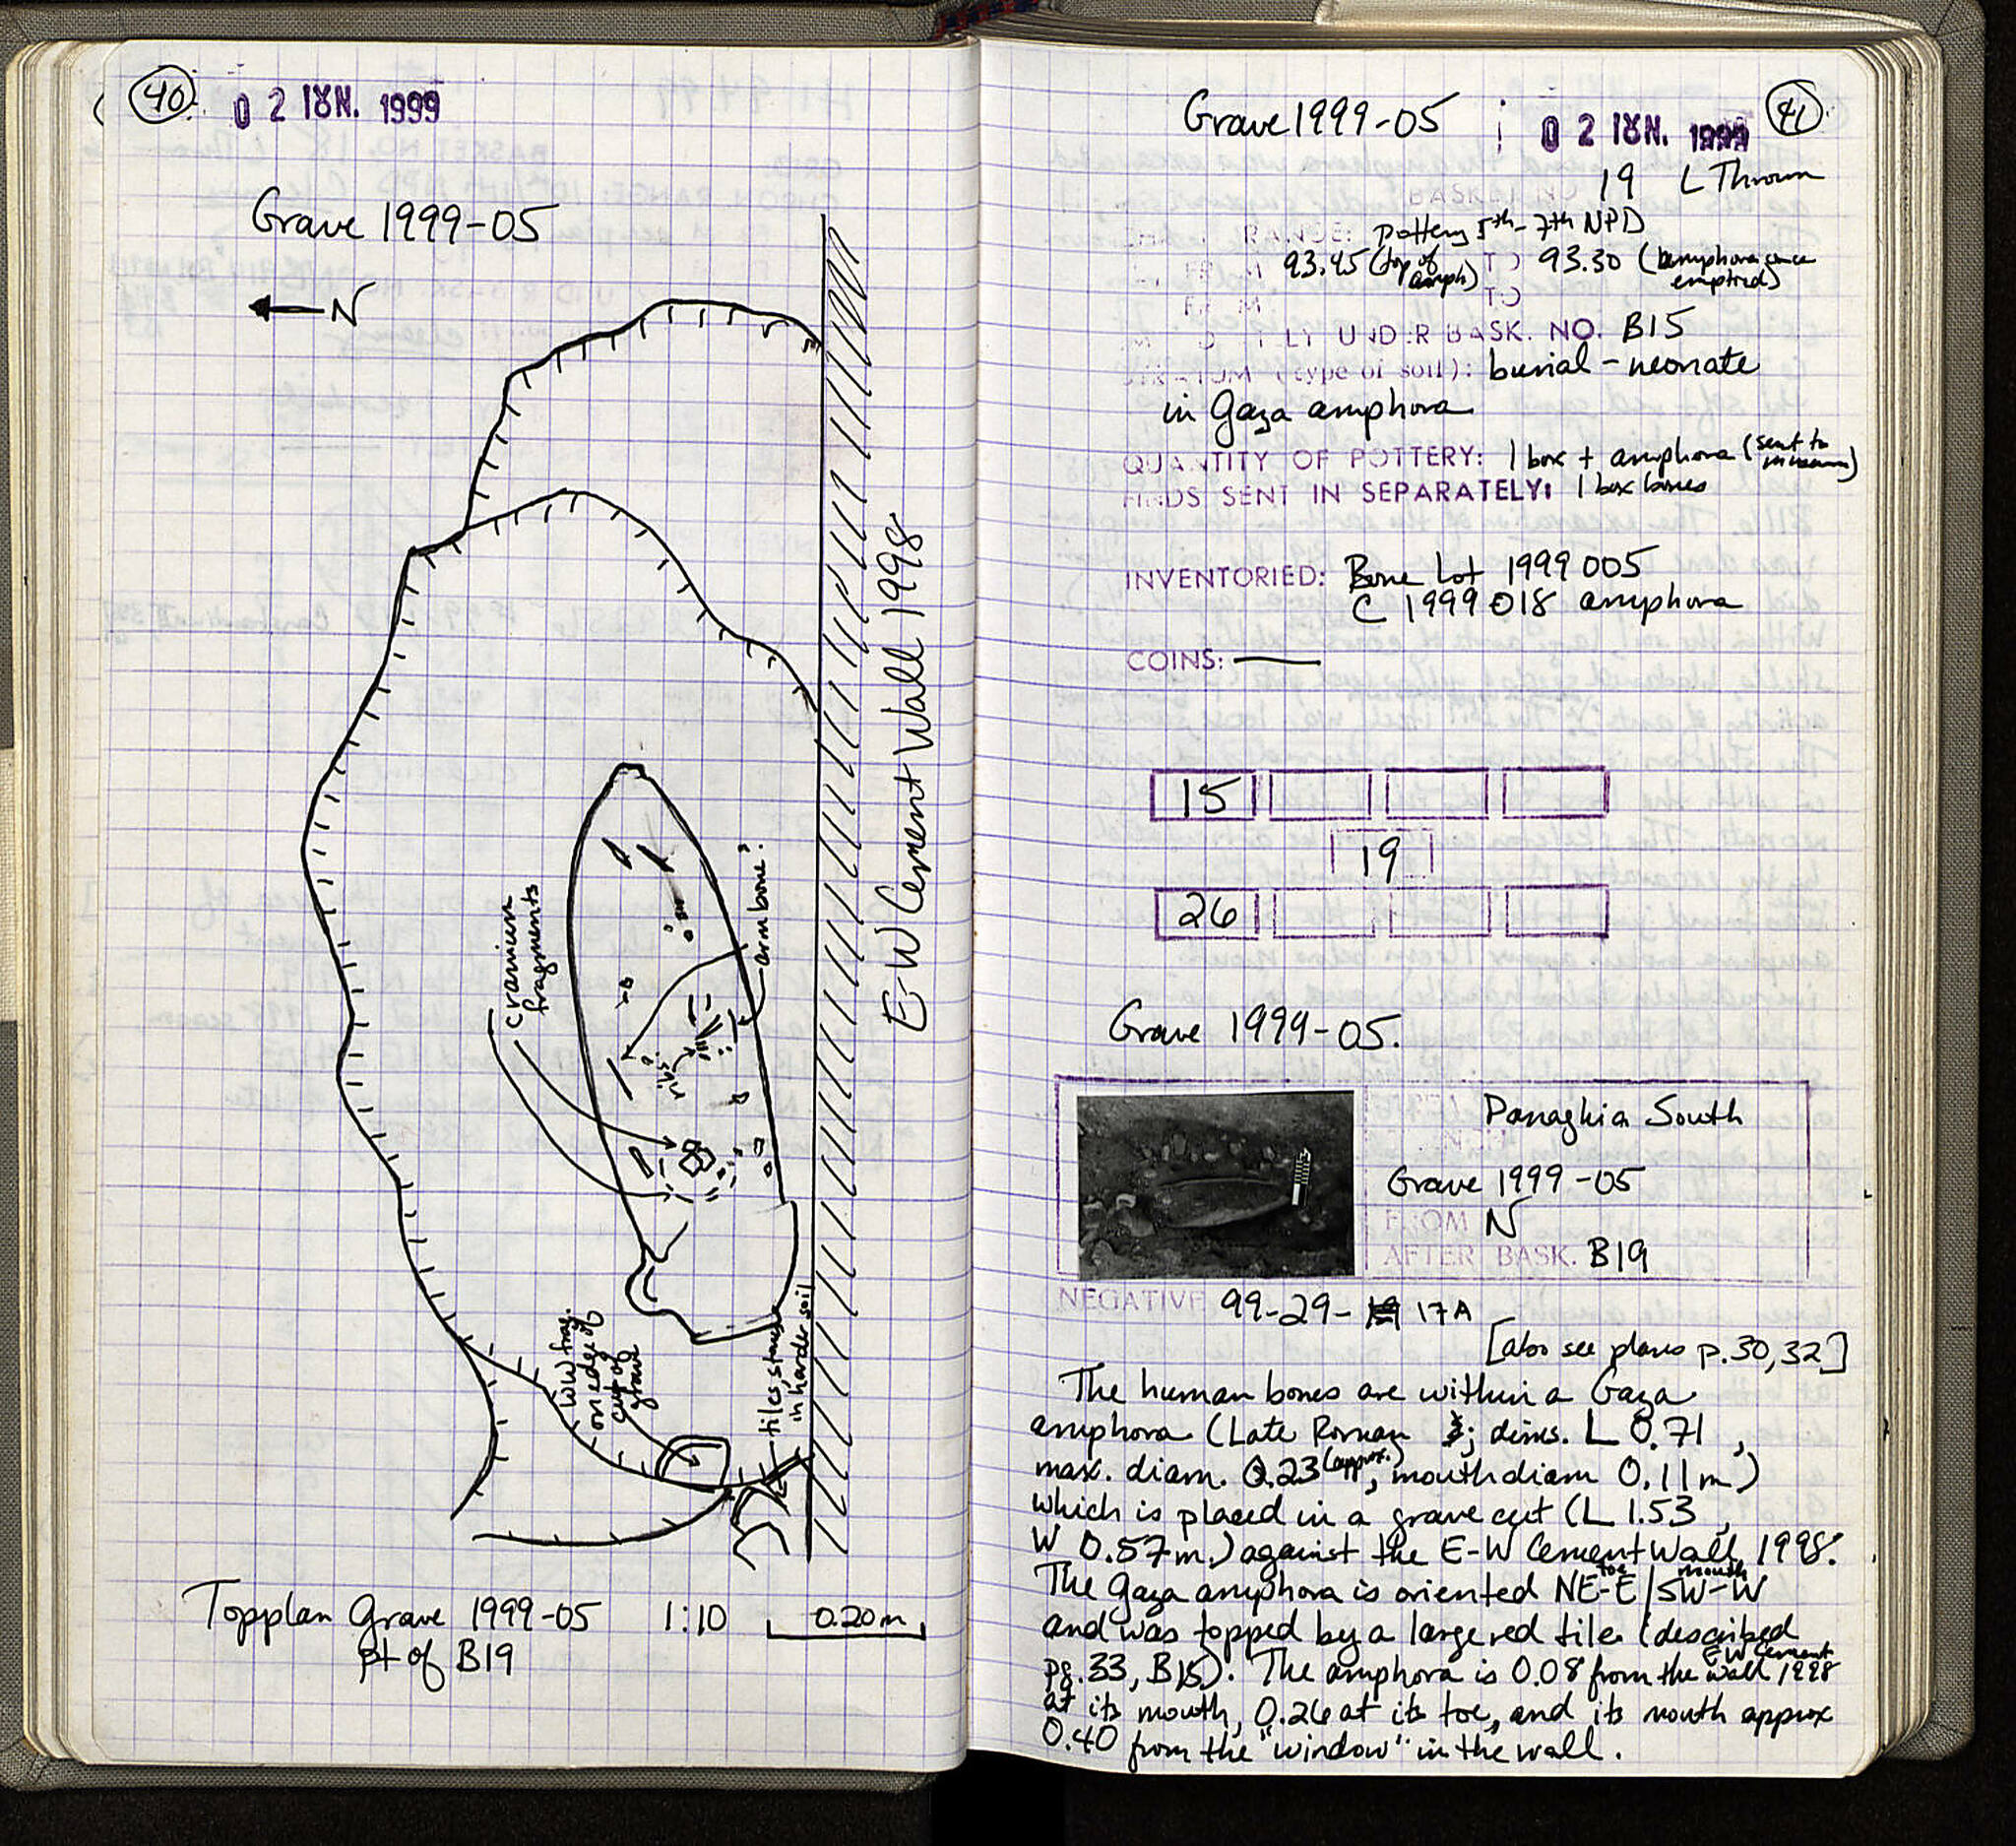 40
02 ΙΟΥΝ. 1999
Grave 1999-05
N
E-W Cement Wall 1998
cranium
fragments
arm bone?
ribs
WW frag.
on edge of
cut of
grave
tiles, stones
in harder soil
Topplan Grave 1999-05 1:10 0.20m
pt of B19
Grave 1999-05
02 ΙΟΥΝ. 1999
41
BASKET NO 19 L Thrown
RANGE: Pottery 5th-7th NPD
FROM 93.45 (top of amph) TO 93.30 (amphora once emptied)
FROM TO
UNDER BASK. NO. B15
STRATUM (type of soil): burial - neonate
in Gaza amphora
QUANTITY OF POTTERY: 1 box + amphora (sent to museum)
FINDS SENT IN SEPARATELY: 1 box bones
INVENTORIED: Bone Lot 1999 005
C 1999 018 amphora
COINS: —
15
19
26
Grave 1999-05.
Panaghia South
Grave 1999-05
FROM N
AFTER BASK. B19
NEGATIVE 99-29- 17A
[also see plans p.30, 32]
The human bones are within a Gaza
amphora (Late Roman ; dims. L 0.71,
max. diam. 0.23 (approx.), mouth diam 0.11 m)
which is placed in a grave cut (L 1.53,
W 0.57m.) against the E-W Cement Wall 1998.
The Gaza amphora is oriented NE-E toe/SW-W mouth
and was topped by a large red tile (described
pg. 33, B15). The amphora is 0.08 from the E-W Cement wall 1998
at its mouth, 0.26 at its toe, and its mouth approx
0.40 from the "window" in the wall.